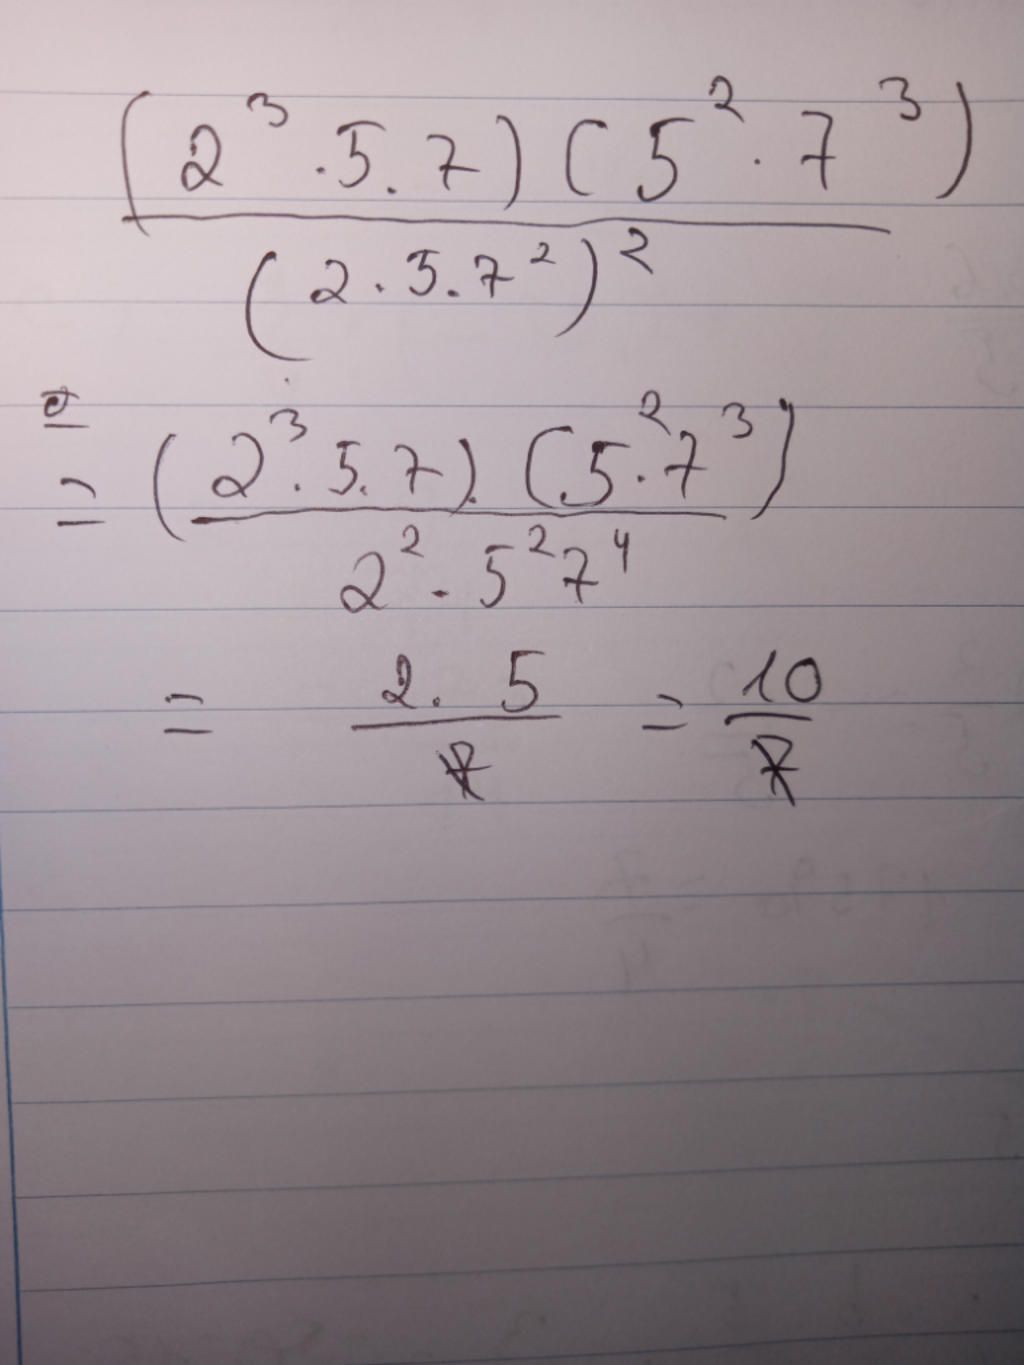 (2³ · 5 . 7) (5² · 7³)
(2 · 5 . 7²)²
= (2³ . 5 . 7) . (5² · 7³)
2² . 5² 7⁴
= 2 . 5 = 10